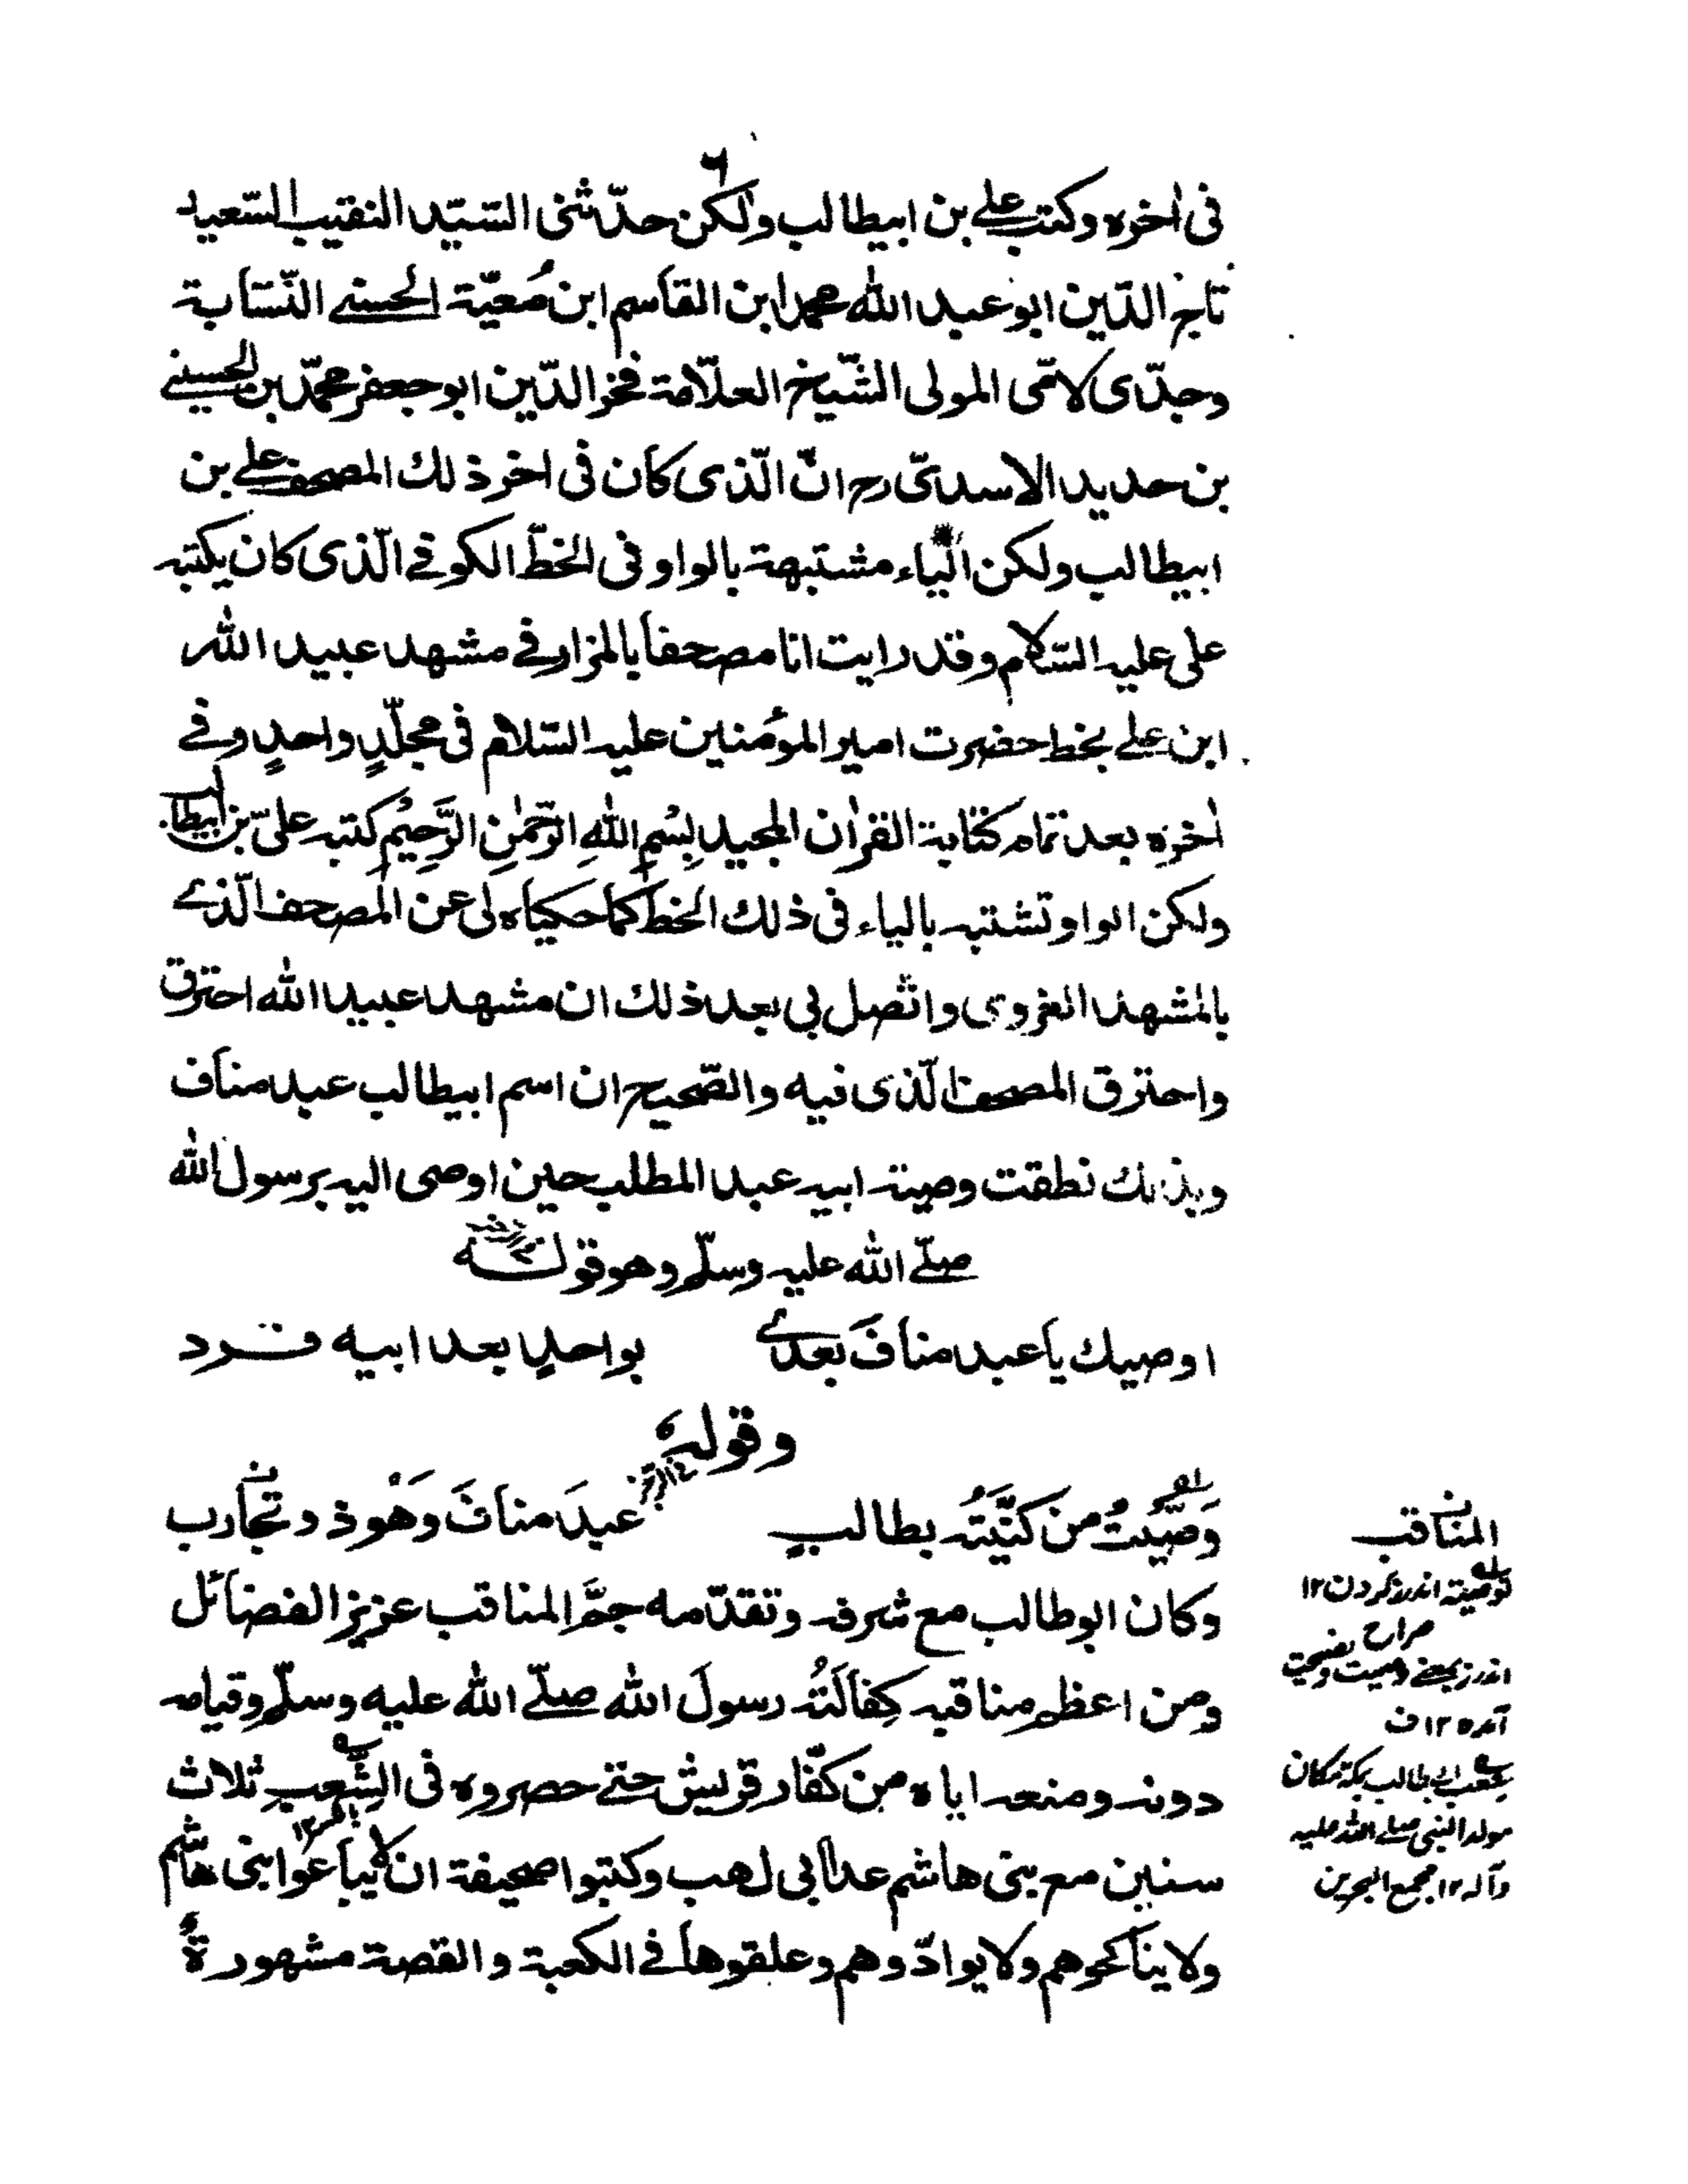 ٦
فى اخره وكتب على بن ابيطالب ولكن حدّثنى السّيّد النقيب السّعيد
تاج الدّين ابو عبد الله محمد ابن القاسم ابن مُعيّة الحسنے النّسّابة
وجدّى لامّى المولى الشّيخ العلّامة فخر الدّين ابو جعفر محمّد بن الحسينے
بن حديد الاسدىّ رح انّ الّذى كان فى اخر ذلك المصحف علے بن
ابيطالب ولكن الياء مشتبهة بالواو فى الخطّ الكوفے الّذى كان يكتبه
على عليه السّلام وقد رايت انا مصحفا بالمزار فے مشهد عبيد الله
ابن علے بخط حضرت امير المؤمنين عليه السّلام فى مجلّدٍ واحدٍ وفے
اخره بعد تمام كتابة القراٰن المجيد بِسْمِ اللهِ الرَّحمٰنِ الرَّحِيْمِ كتبه علىّ بن ابيطالب
ولكن الواو تشتبه بالياء فى ذلك الخط كما حكياه لى عن المصحف الّذے
بالمشهد الغروى واتّصل بى بعد ذلك ان مشهد عبيد الله احترق
واحترق المصحف الّذى فيه والصّحيح ان اسم ابيطالب عبد مناف
وبذلك نطقت وصية ابيه عبد المطلب حين اوصى اليه برسول الله
صلّے الله عليه وسلّم وهو قوله
اوصيك يا عبد منافَ بعدے بواحدٍ بعد ابيه فرد
وقوله
وَصَّيتُ من كَنَّيتُه بطالبٍ عبدَ منافَ وَهْو ذو تجارب
وكان ابو طالب مع شرفه وتقدّمه جمَّ المناقب عزيز الفضائل
ومن اعظم مناقبه كِفالَتُه رسولَ الله صلّے الله عليه وسلّم وقيامه
دونه ومنعه اياه من كفّار قريش حتے حصروه فى الشّعب ثلاث
سنين مع بنى هاشم عدا ابى لهب وكتبوا صحيفة ان لا يبايعوا بنى هاشم
ولا يناكحوهم ولا يوادّوهم وعلقوها فے الكعبة والقصة مشهورةٌ
المناقب
توصية اندرز كردن ١٢
صراح
اندرز بمعنے وصيت ونصيحت
آمده ١٢ ف
شعب ابے طالب بمكة مكان
مولد النبى صلے الله عليه
وآله ١٢ مجمع البحرين